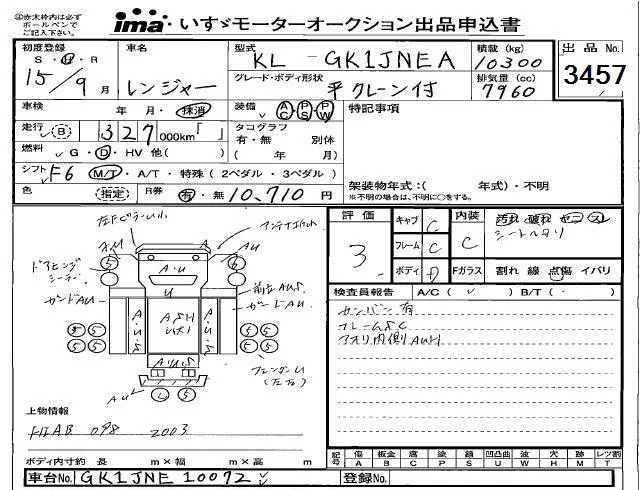 ◎赤太枠内は必ず
ボールペンで
ご記入下さい。
ima・いすゞモーターオークション出品申込書
初度登録
S・H・R
15/9月
車名
レンジャー
型式
KL-GK1JNEA
グレード・ボディ形状
平クレーン付
積載(kg)
10300
排気量(cc)
7960
出品No.
3457
車検 年・月・抹消
走行 B 327 000km「 」
燃料 G・D・HV 他( )
シフト F6 M/T・A/T・特殊(2ペダル・3ペダル)
色 (指定) R券 有・無 10,710円
装備 AC・PS・PW
タコグラフ
有・無 別体
( 年/ 月)
特記事項
架装物年式:( 年式)・不明
※不明の場合は、不明に○をする。
評価
3
キャブ C
フレーム C
ボディ D
内装 C
汚れ 破れ ヤニ スレ
シートヘタリ
Fガラス 割れ 線 点傷 イバリ
検査員報告 A/C( ✓ ) B/T( ・ )
カンバン有
フレームSC
アオリ内側AUH
左Fピラーいハ
AU
A
AU
ドアヒンジ
シーラー
ガードAU
A・U
U
前立AUS
ガードAU
A・U・S
ASH
A・U・S
5
6
5 5
5 5
5 5
5 5
AUS
フェンダーU
(左右)
AU
5
上物情報
098 2003
ボディ内寸約 長 m×幅 m×高 m
記号 傷 板金 腐 塗 錆 凹凸曲 波 穴 跡 レツ割
A B C P S U W H M T
車台No. GK1JNE 10072
登録No.